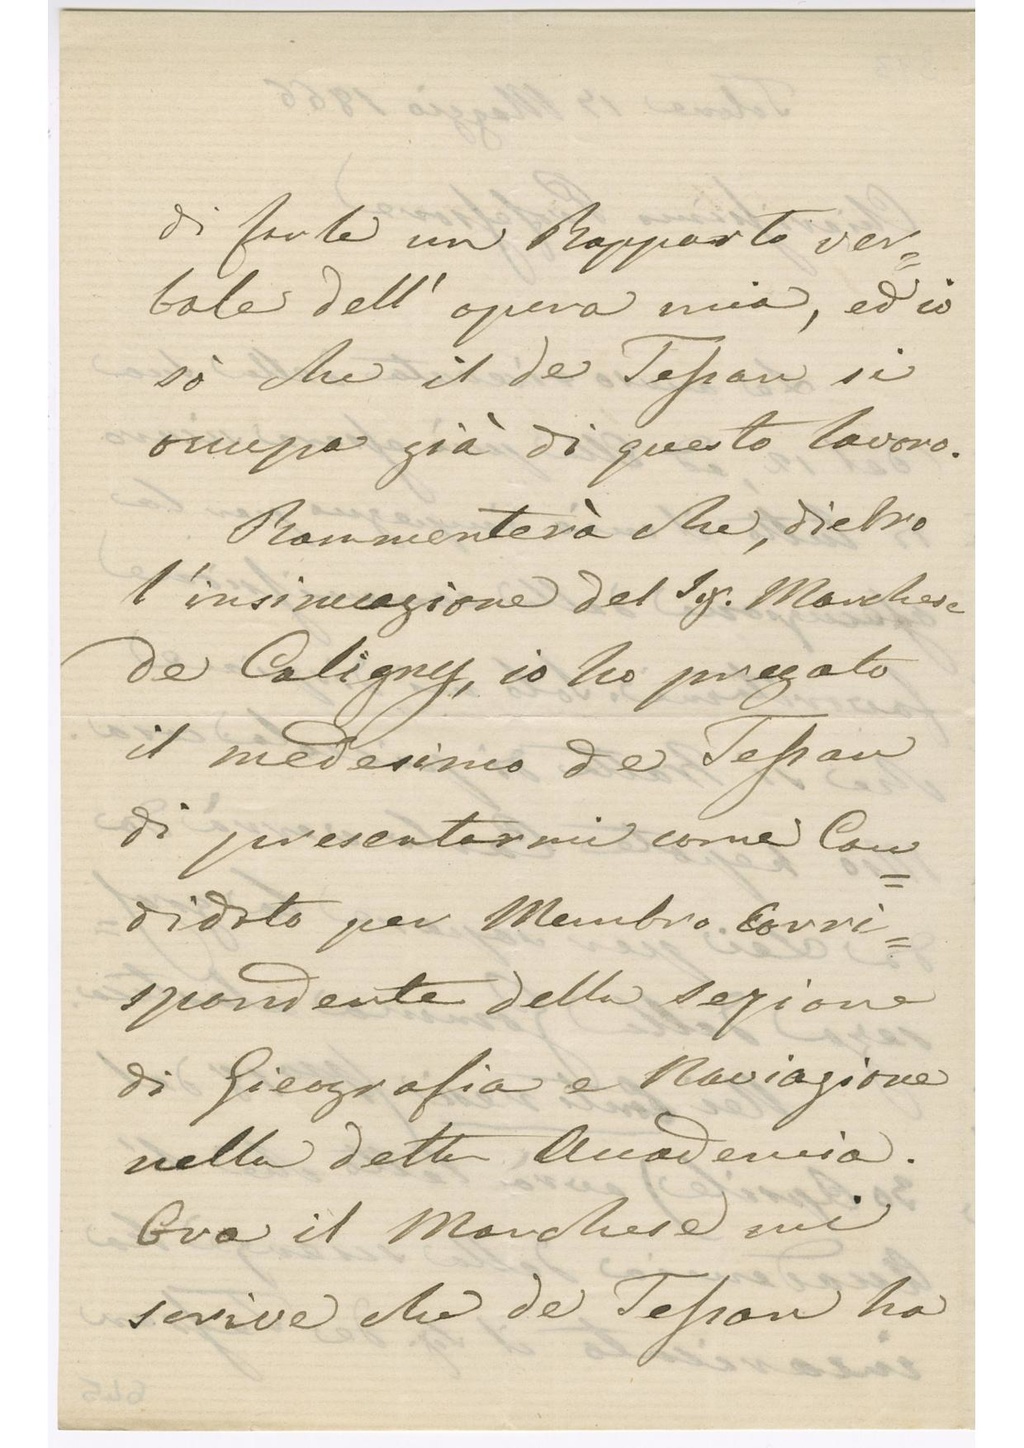 di farle un Rapporto ver=
bale dell' opera mia, ed io
sò che il de Tessan si
occupa già di questo lavoro.
Rammenterà che, dietro
l'insinuazione del Sig. Marchese
de Caligny, io ho pregato
il medesimo de Tessan
di presentarmi come Can=
didato per Membro Corri=
spondente della sezione
di Gieografia e Naviazione
nella detta Accademia.
Ora il Marchese mi
scrive che de Tessan ha